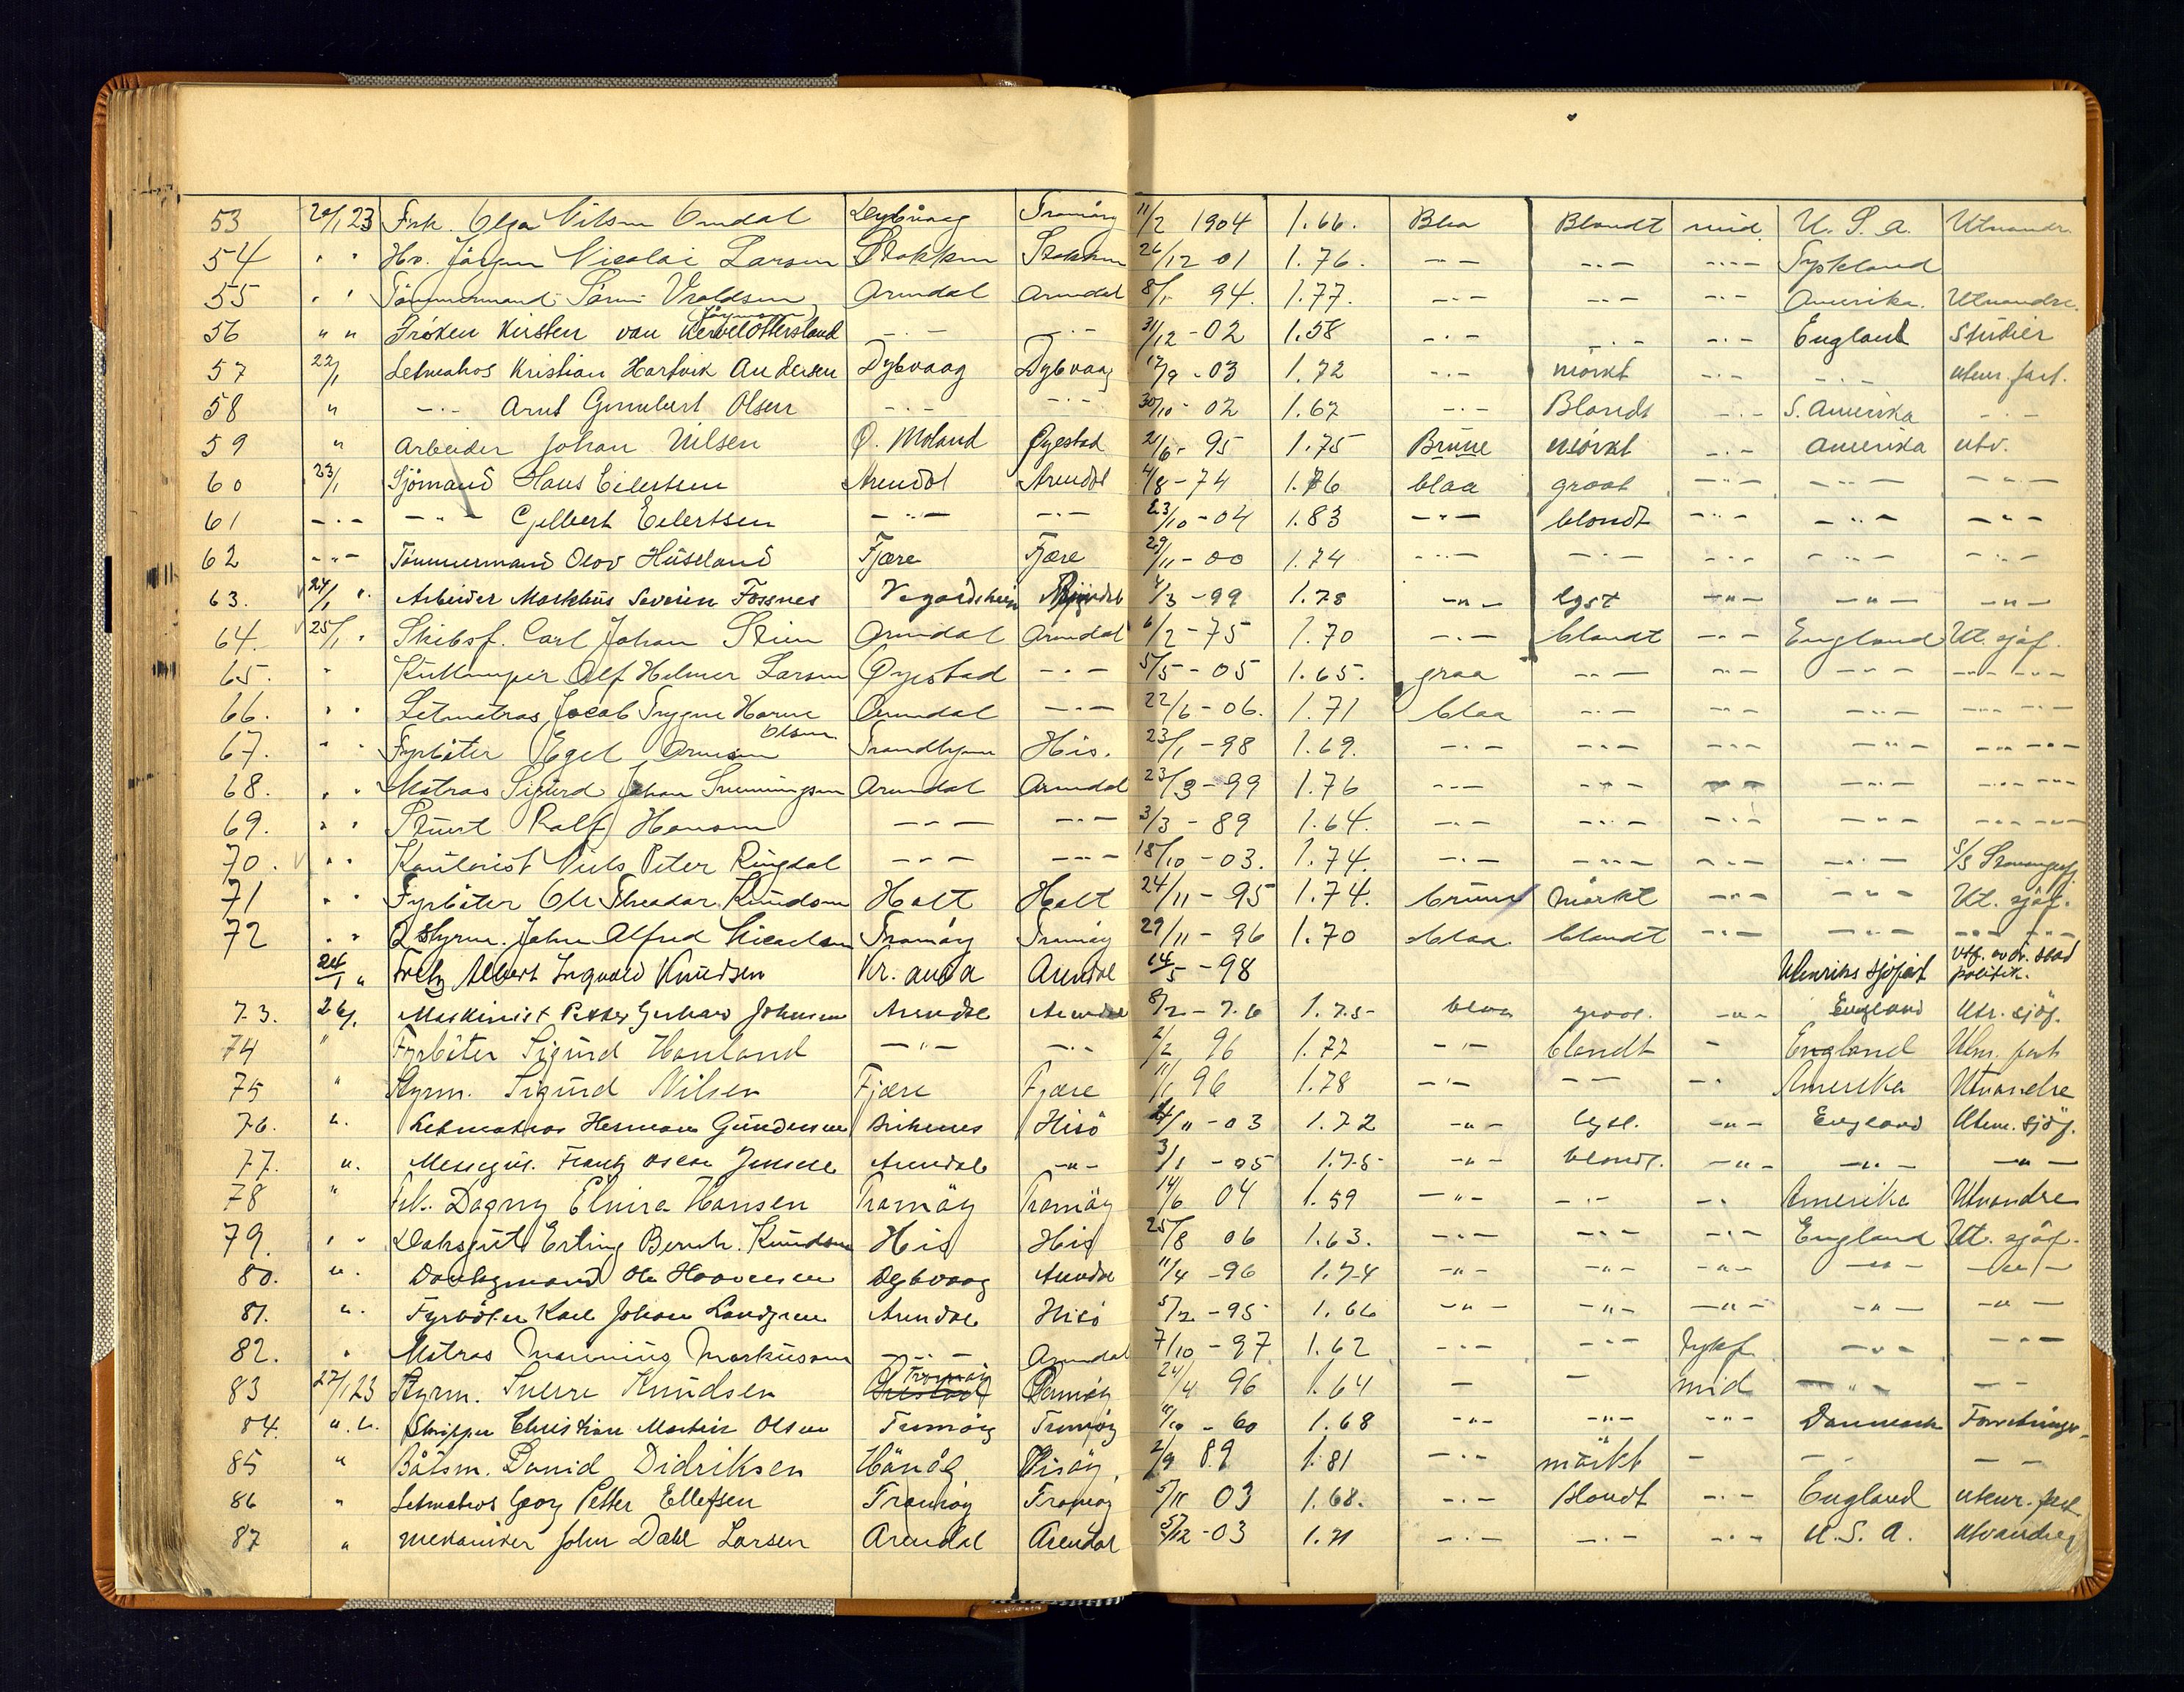 53 20/1 23 Frk. Olga Nilsen Omdal Dybvaag Tromöy 11/2 1904 1.66. Blaa Blondt mid. U.S.A. Utvandr.
54 " " Hr. Jörgen Nicolai Larsen Stokken Stokken 26/12 01 1.76. -"- -"- -"- Tyskland
55 " " Tömmermand Vroldsen Arendal Arendal 8/1 94. 1.77. -"- -"- -"- Amerika. Utvandre.
56 " " Fröken Kirsten van Kervel Ottersland -"- -"- 31/12 - 02 1.58 -"- -"- -"- England Studier
57 22/1 Letmatros Kristian Hartvik Andersen Dybvaag Dybvaag 17/9 - 03 1.72 -"- mörkt -"- -"- utenr. fart.
58 " -"- Arnt Olsen -"- -"- 30/10 - 02 1.67 -"- Blondt -"- S. Amerika -"-
59 " Arbeider Johan Nilsen Ö. Moland Öyestad 21/6 - 95 1.75 Brune mörkt -"- Amerika utv.
60 23/1 Sjömand Hans Eilertsen Arendal Arendal 4/8 - 74 1.76 blaa graat -"- -"- -"-
61 -"- -"- Gilbert Eilertsen -"- -"- 23/10 - 04 1.83 -"- blondt -"- -"- -"-
62 -"- Tömmermand Olov Hüseland Fjære Fjære 29/11 - 00 1.74 -"- -"- -"- -"- -"-
63. 24/1 " Arbeider Markhus Severin Fossnes Vegaardsheien 4/3 - 99 1.78 -"- lyst -"- -"- -"-
64. 25/1 " Skibsf. Carl Johan Stien Arendal Arendal 6/2 - 75 1.70 -"- blondt -"- England Ut. sjöf.
65. " Kullemper Alf Helmer Larsen Öyestad -"- 5/5 - 05 1.65. graa -"- -"- -"- -"-
66. " " Letmatros Jacob Trygve Horne Olsen Arendal -"- 22/6 - 06. 1.71 blaa -"- -"- -"- -"-
67. " " Fyrböter Egel Arnesen Trondhjem His. 23/1 - 98 1.69. -"- -"- -"- -"- -"-
68. " " Matros Sigurd Johan Arendal Arendal 23/3 - 99 1.76 -"- -"- -"- -"- -"-
69. " " Stuert Ralf Hansen -"- -"- 3/3 - 89 1.64. -"- -"- -"- -"- -"-
70. " " Kontorist Niels Peter Ringdal -"- -"- 18/10 - 03. 1.74. -"- -"- -"- -"- S/S
71 " " Fyrböter Ole Theodor Knudsen Holt Holt 24/11 - 95 1.74. brune mörkt -"- -"- Ut. sjöf.
72 " " 2 Styrm. John Alfred Tromöy Tromöy 29/11 - 96 1.70 blaa. blondt -"- -"- -"-
24/1 " Fretz Albert Ingvald Knüdsen Kr. sand Arendal 14/5 - 98 Utenriks sjöfart Utf. av politik.
73. 26/1 Maskinist Petter Gerhard Johnsen Arendal Arendal 8/2 - 76 1.75 blaa graat. -"- England Utr. sjöf.
74 " Fyrböter Sigurd Hauland -"- -"- 2/2 96 1.77 -"- blondt - England Utenr. fart
75 " Styrm. Sigurd Nilsen Fjære Fjære 11/1 96 1.78 -"- -"- -"- Amerika Utvandre
76. ". Letmatros Herman Gundersen Birkenes Hisö 21/11 - 03 1.72 -"- lyst. -"- England Utenr. sjöf.
77. ". Messegut. Frantz Oscar Jensen Arendal -"- 3/1 - 05 1.75 -"- blondt. -"- -"- -"-
78 " Frk. Dagny Elvira Hansen Tromöy Tromöy 14/6 04 1.59 -"- -"- -"- Amerika Utvandre
79. " " Daksgut Erling Bernh. Knudsen His His 25/8 06 1.63. -"- -"- -"- England Ut. sjöf.
80. ". Donkeymand Ole Dybvaag Arendal 11/4 - 96 1.74 -"- -"- -"- -"- -"-
81. ". Fyrböter Karl Johan Landgren Arendal Hisö 5/2 - 95 1.66 -"- -"- -"- -"- -"-
82. " Matros Marinius Markusen -"- Arendal 7/10 - 97 1.62 -"- -"- -"- -"-
83 27/1 23 Styrm. Sverre Knudsen Tromöy Tromöy 24/4 96 1.64 - - mid -"-
84. " ". Skipper Christian Martin Olsen Tromöy Tromöy 11/10 - 60 1.68 -"- -"- -"- Danmark
85 " Båtsm. David Didriksen Hisöy, 2/9 89 1.81 -"- mörkt - - -
86 " Letmatros Georg Petter Ellefsen Tromöy Tromöy 5/11 03 1.68. -"- Blondt -"- England utenr. fart
87 " Mekaniker John Dahl Larsen Arendal Arendal 5/12 - 03 1.71 -"- -"- -"- U.S.A. Utvandre